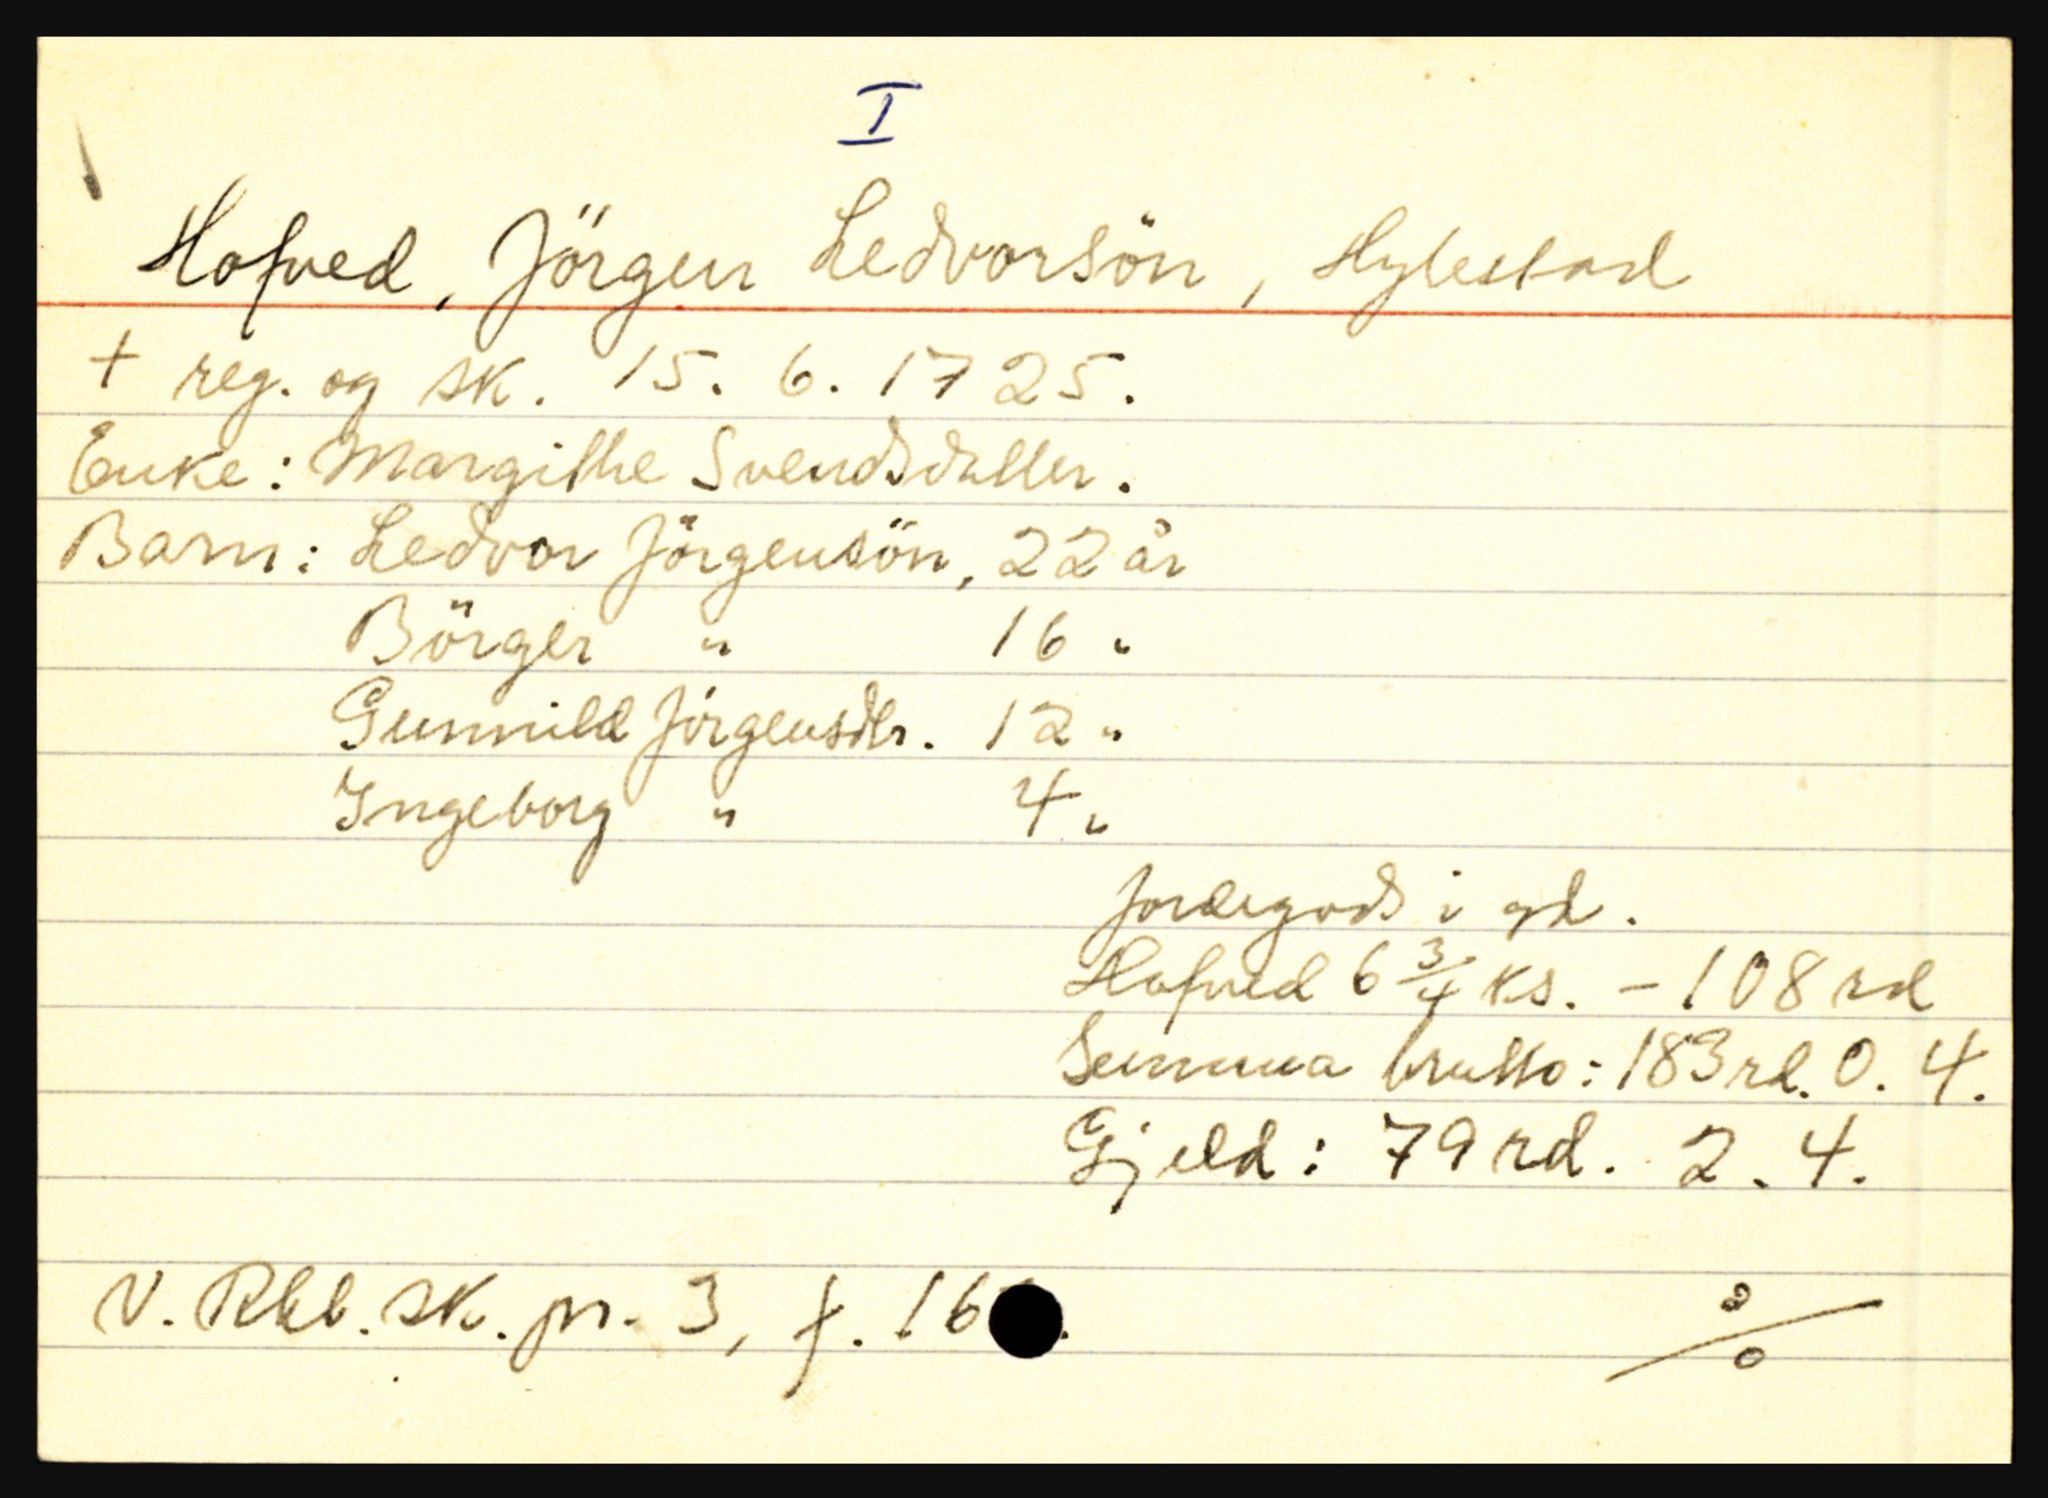 I
Hofved, Jörgen Ledvorsön, Hylestad
+ reg. og sk. 15. 6. 1725.
Enke: Margithe Svendsdatter.
Barn: Ledvor Jörgensön, 22 år
Börger " 16 "
Gunnild Jörgensdtr. 12 "
Ingeborg " 4 "
Jordegods i gd.
Hofved 6 3/4 ks. - 108 rd
Summa brutto: 183 rd. 0. 4.
Gjeld: 79 rd. 2. 4.
V. Rbl. sk. pr. 3, f.